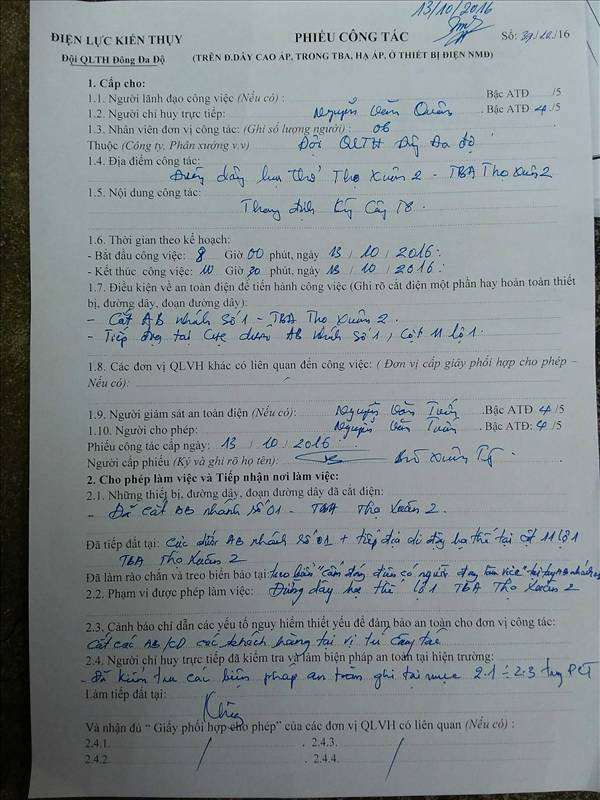 13/10/2016
ĐIỆN LỰC KIẾN THỤY
Đội QLTH Đông Đa Độ
PHIẾU CÔNG TÁC
Số: 39/10/16
(TRÊN Đ.DÂY CAO ÁP, TRONG TBA, HẠ ÁP, Ở THIẾT BỊ ĐIỆN NMĐ)
1. Cấp cho:
1.1. Người lãnh đạo công việc (Nếu có) : Bậc ATĐ /5
1.2. Người chỉ huy trực tiếp: Nguyễn Văn Quân . Bậc ATĐ 4 /5
1.3. Nhân viên đơn vị công tác: (Ghi số lượng người) : 06
Thuộc (Công ty, Phân xưởng v.v) Đội QLTH Đông Đa độ
1.4. Địa điểm công tác:
Đường dây hạ thế Thọ Xuân 2 - TBA Thọ Xuân 2
1.5. Nội dung công tác:
Thay Định Kỳ Công Tơ.
1.6. Thời gian theo kế hoạch:
- Bắt đầu công việc: 8 Giờ 00 phút, ngày 13 / 10 / 2016.
- Kết thúc công việc: 10 Giờ 30 phút, ngày 13 / 10 / 2016.
1.7. Điều kiện về an toàn điện để tiến hành công việc (Ghi rõ cắt điện một phần hay hoàn toàn thiết
bị, đường dây, đoạn đường dây):
- Cắt AB nhánh số 1 - TBA Thọ Xuân 2.
- Tiếp địa tại Cực dưới AB nhánh số 1, Cột 11 lộ 1.
1.8. Các đơn vị QLVH khác có liên quan đến công việc: ( Đơn vị cấp giấy phối hợp cho phép –
Nếu có):
1.9. Người giám sát an toàn điện (Nếu có): Nguyễn Văn Tuấn .Bậc ATĐ 4 /5
1.10. Người cho phép: Nguyễn Văn Tuấn .Bậc ATĐ: 4 /5
Phiếu công tác cấp ngày: 13 / 10 / 2016
Người cấp phiếu (Ký và ghi rõ họ tên): Xuân
2. Cho phép làm việc và Tiếp nhận nơi làm việc:
2.1. Những thiết bị, đường dây, đoạn đường dây đã cắt điện:
- Đã cắt AB nhánh số 01 - TBA Thọ Xuân 2.
Đã tiếp đất tại: Cực dưới AB nhánh số 01 + tiếp địa di động hạ thế tại cột 11 lộ 1
TBA Thọ Xuân 2
Đã làm rào chắn và treo biển báo tại: treo biển "cấm đóng điện có người đang làm việc" tại
2.2. Phạm vi được phép làm việc: Đường dây hạ thế lộ 1 TBA Thọ Xuân 2
2.3. Cảnh báo chỉ dẫn các yếu tố nguy hiểm thiết yếu để đảm bảo an toàn cho đơn vị công tác:
Cắt các AB/CD các khách hàng tại vị trí công tác
2.4. Người chỉ huy trực tiếp đã kiểm tra và làm biện pháp an toàn tại hiện trường:
- Đã kiểm tra các biện pháp an toàn ghi tại mục 2.1 ÷ 2.3 trong PCT
Làm tiếp đất tại: Không
Và nhận đủ “ Giấy phối hợp cho phép” của các đơn vị QLVH có liên quan (Nếu có) :
2.4.1. / . 2.4.3. /
2.4.2. . 2.4.4.